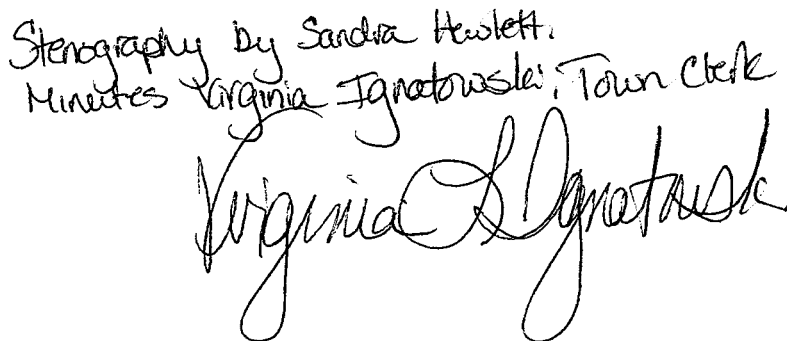 Stenography by Sandra Hewlett.
Minutes Virginia Ignatowski, Town Clerk
Virginia L Ignatowsk